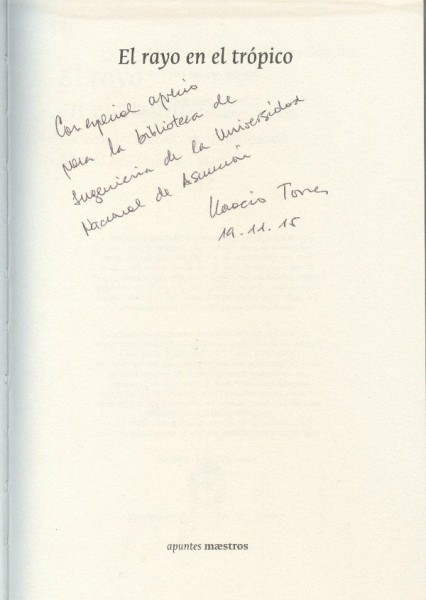 El rayo en el trópico
Con especial aprecio
para la biblioteca de
Ingeniería de la Universidad
Nacional de Asunción
Horacio Torres
19.11.15
apuntes mæstros